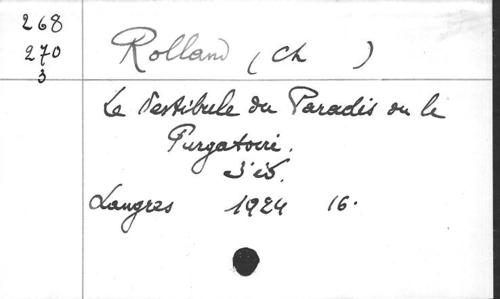 268
270
3
Rolland (Ch )
Le Vestibule du Paradis ou le
Purgatoire.
3e éd.
Langres 1924 16.